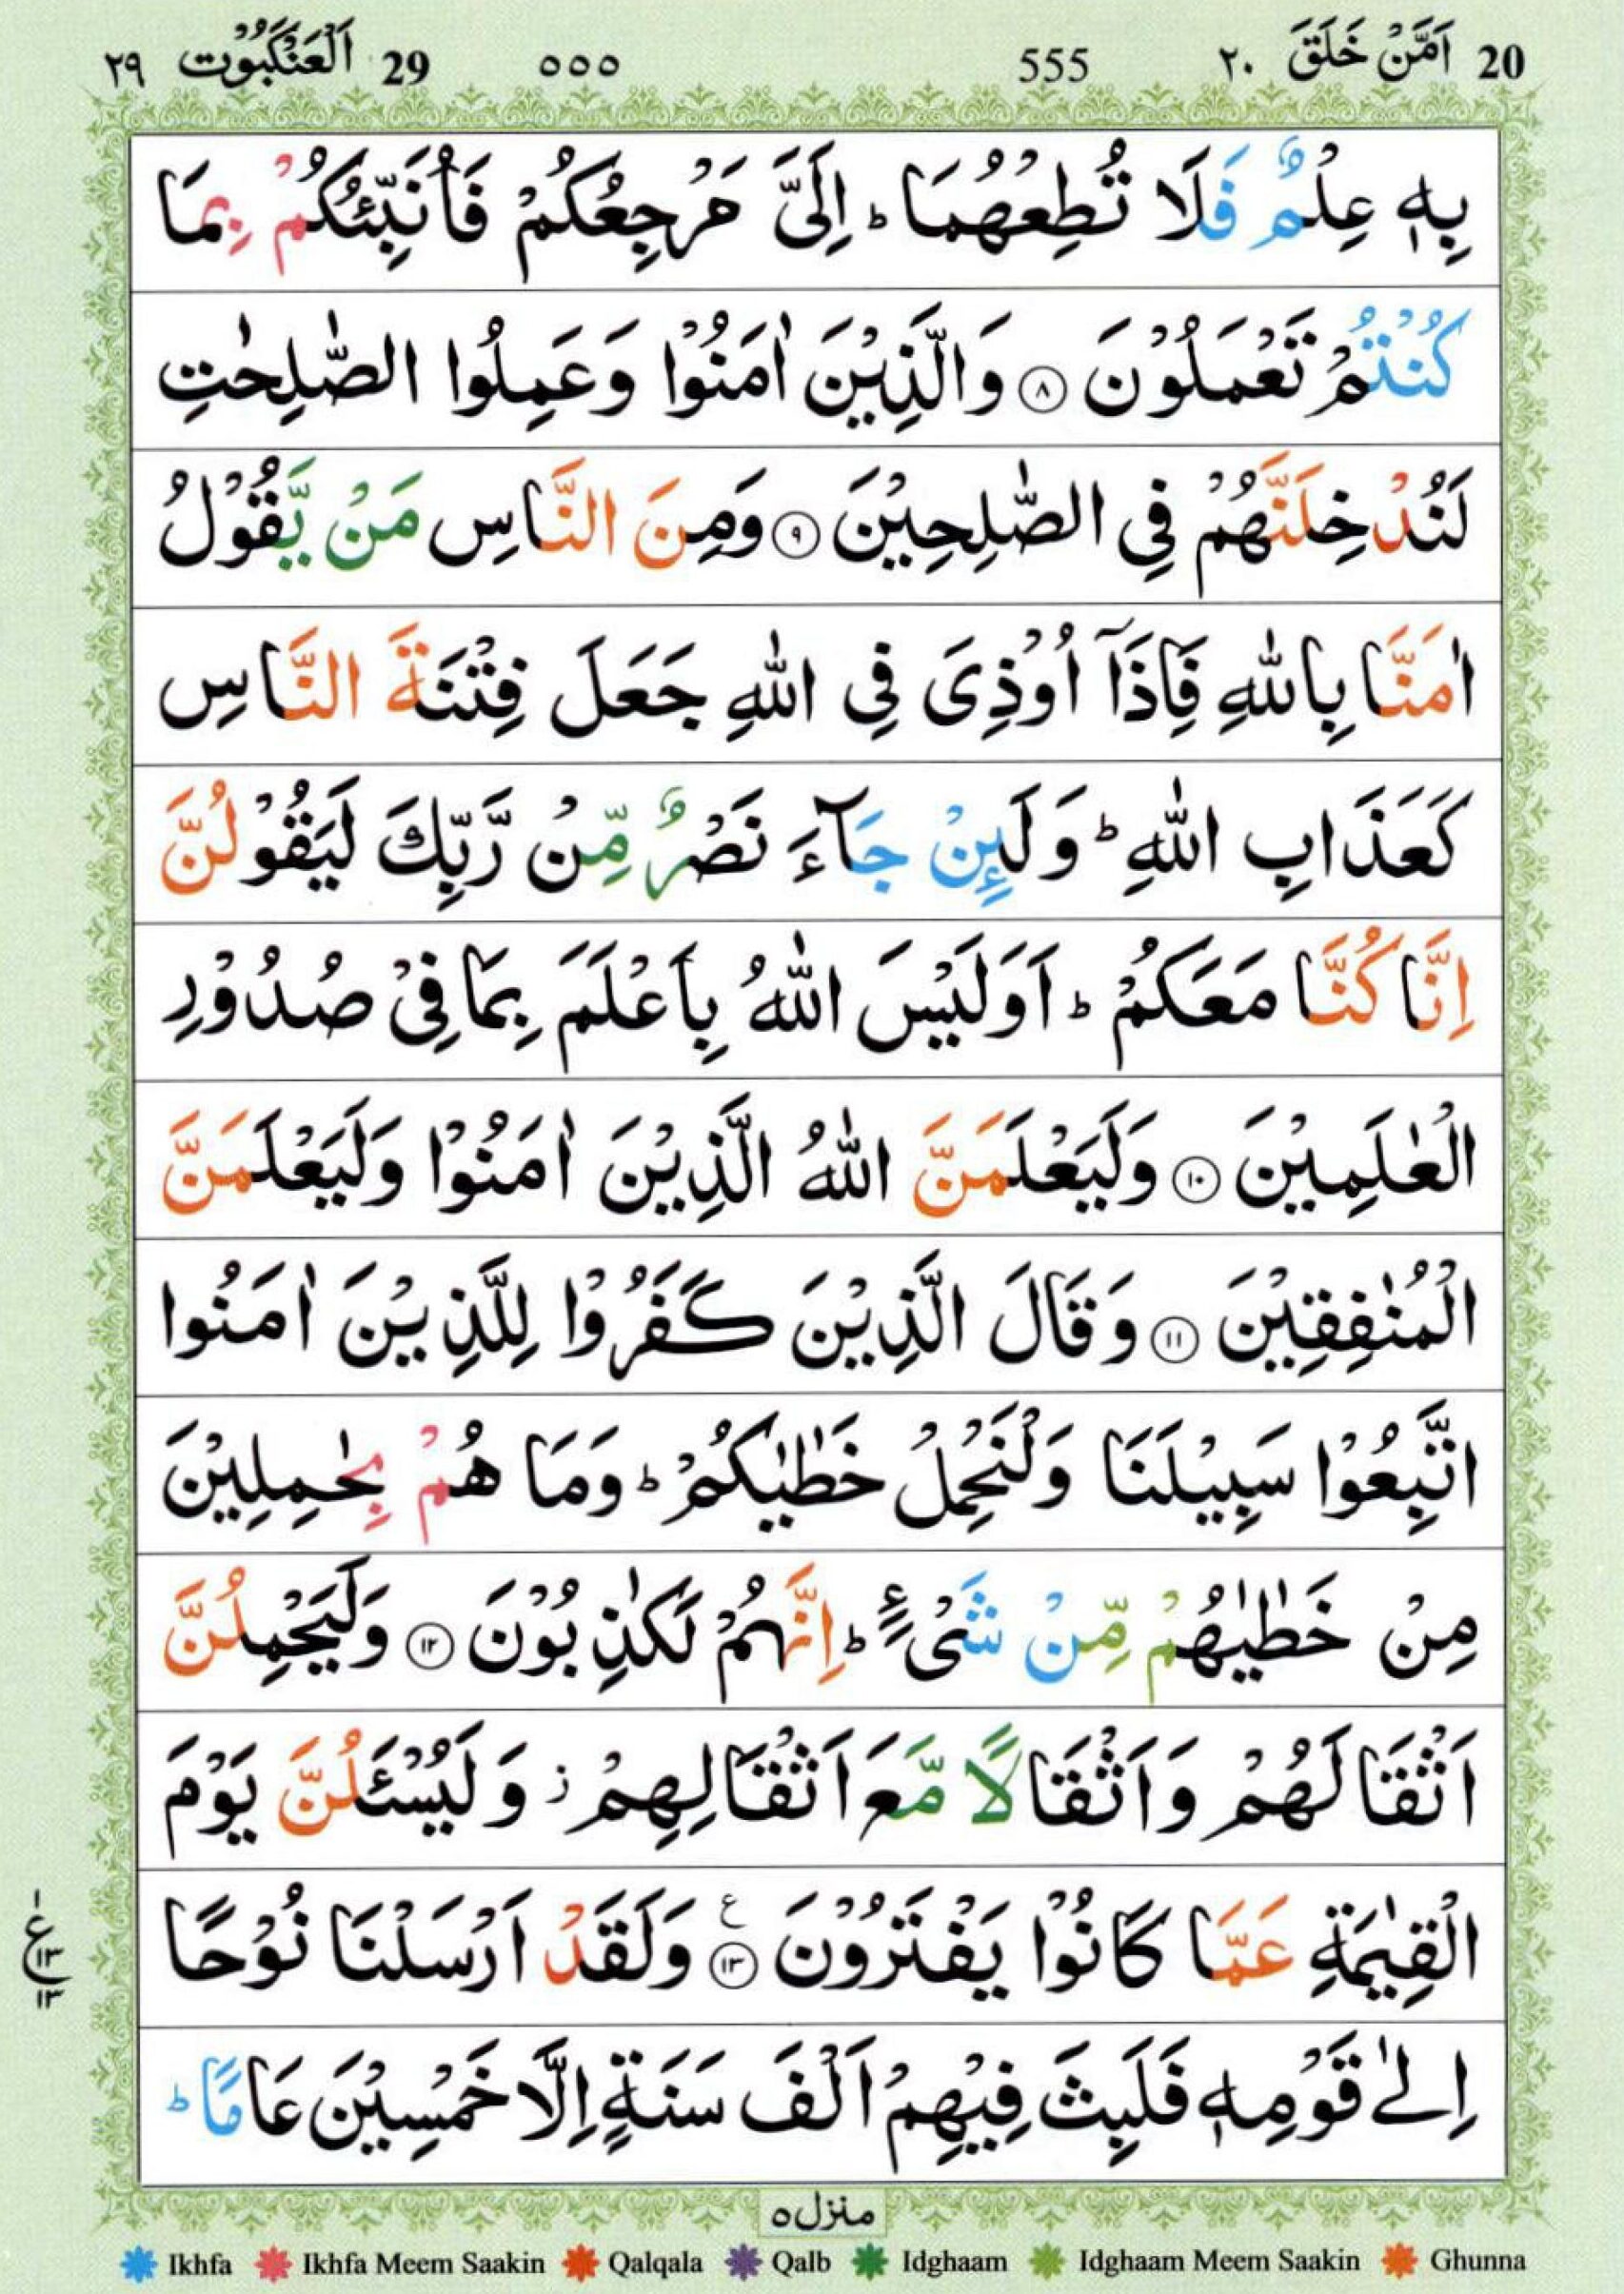 20 اَمَّنْ خَلَقَ ٢٠ 555 ٥٥٥ 29 اَلْعَنْكَبُوْت ٢٩
بِهٖ عِلْمٌ فَلَا تُطِعْهُمَا ؕ اِلَیَّ مَرْجِعُكُمْ فَاُنَبِّئُكُمْ بِمَا
كُنْتُمْ تَعْمَلُوْنَ ۝٨ وَالَّذِیْنَ اٰمَنُوْا وَعَمِلُوا الصّٰلِحٰتِ
لَنُدْخِلَنَّهُمْ فِی الصّٰلِحِیْنَ ۝٩ وَمِنَ النَّاسِ مَنْ یَّقُوْلُ
اٰمَنَّا بِاللّٰهِ فَاِذَاۤ اُوْذِیَ فِی اللّٰهِ جَعَلَ فِتْنَةَ النَّاسِ
كَعَذَابِ اللّٰهِ ؕ وَلَىِٕنْ جَآءَ نَصْرٌ مِّنْ رَّبِّكَ لَیَقُوْلُنَّ
اِنَّا كُنَّا مَعَكُمْ ؕ اَوَلَیْسَ اللّٰهُ بِاَعْلَمَ بِمَا فِیْ صُدُوْرِ
الْعٰلَمِیْنَ ۝١٠ وَلَیَعْلَمَنَّ اللّٰهُ الَّذِیْنَ اٰمَنُوْا وَلَیَعْلَمَنَّ
الْمُنٰفِقِیْنَ ۝١١ وَقَالَ الَّذِیْنَ كَفَرُوْا لِلَّذِیْنَ اٰمَنُوا
اتَّبِعُوْا سَبِیْلَنَا وَلْنَحْمِلْ خَطٰیٰكُمْ ؕ وَمَا هُمْ بِحٰمِلِیْنَ
مِنْ خَطٰیٰهُمْ مِّنْ شَیْءٍ ؕ اِنَّهُمْ لَكٰذِبُوْنَ ۝١٢ وَلَیَحْمِلُنَّ
اَثْقَالَهُمْ وَاَثْقَالًا مَّعَ اَثْقَالِهِمْ ؗ وَلَیُسْـَٔلُنَّ یَوْمَ
الْقِیٰمَةِ عَمَّا كَانُوْا یَفْتَرُوْنَ ۝١٣ ع وَلَقَدْ اَرْسَلْنَا نُوْحًا
١ ع ١٣ ١٣
اِلٰی قَوْمِهٖ فَلَبِثَ فِیْهِمْ اَلْفَ سَنَةٍ اِلَّا خَمْسِیْنَ عَامًا ؕ
منزل ٥
Ikhfa Ikhfa Meem Saakin Qalqala Qalb Idghaam Idghaam Meem Saakin Ghunna